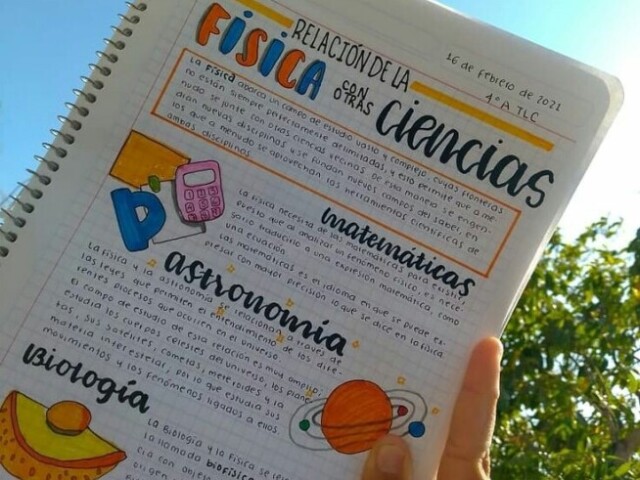 RELACIÓN DE LA
FISICA CON OTRAS Ciencias
16 de febrero de 2021
4°A TLC
La física abarca un campo de estudio vasto y complejo, cuyas fronteras
no están siempre perfectamente delimitadas, y esto permite que a me-
nudo se junte con otras ciencias vecinas. De esta manera se engen-
dran nuevas disciplinas y se fundan nuevos campos del saber, en
los que a menudo se aprovechan las herramientas científicas de
ambas disciplinas.
matemáticas
La física necesita de las matemáticas para existir
puesto que al analizar un fenómeno físico, es nece-
sario traducirlo a una expresión matemática, como
una ecuación.
Las matemáticas es el idioma en que se puede ex-
presar con mayor precisión lo que se dice en la física.
astronomía
La física y la astronomía se relacionan a través de
las leyes que permiten el entendimiento de los dife-
rentes procesos que ocurren en el universo.
El campo de estudio de esta relación es muy amplio:
estudia los cuerpos celestes del universo, los plane-
tas, sus satélites, cometas, meteoroides y la
materia interestelar, por lo que estudia sus
movimientos y los fenómenos ligados a ellos.
Biología
La biología y la física se
la llamada biofísica
cia con
origen